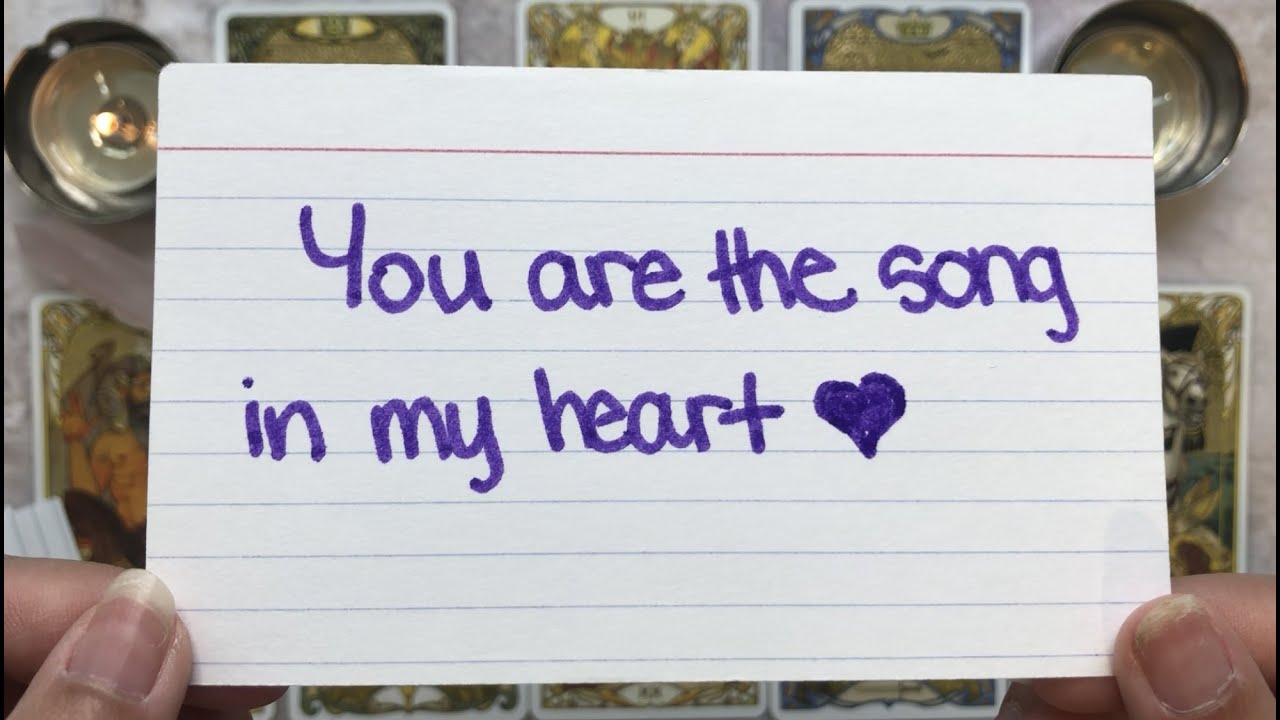 You are the song
in my heart 💜